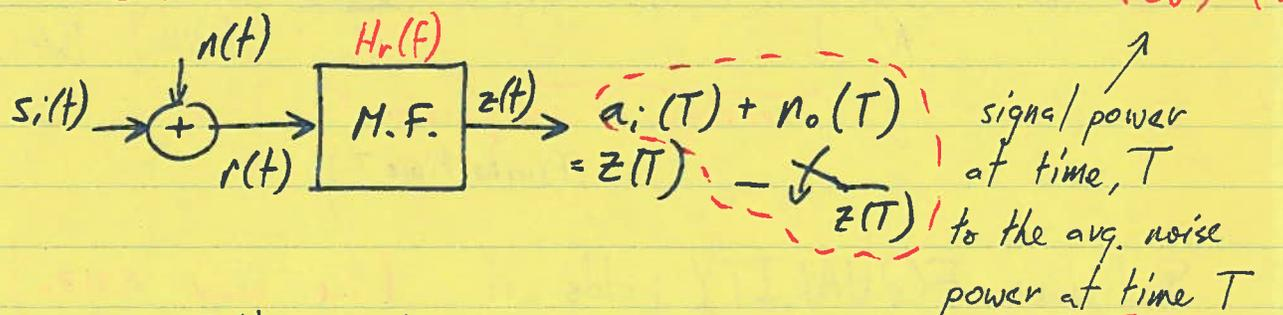 n(t)
Hr(f)
si(t)
+
r(t)
M.F.
z(t)
ai(T) + no(T)
= z(T)
z(T)
signal power
at time, T
to the avg. noise
power at time T